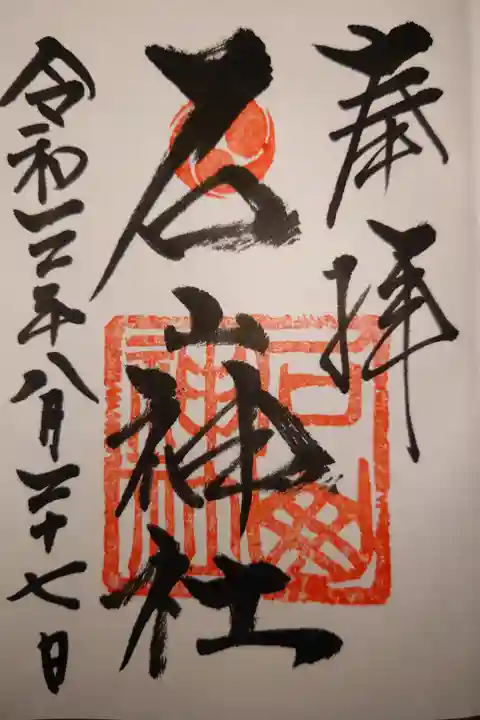 奉拝
石山神社
令和三年八月二十七日